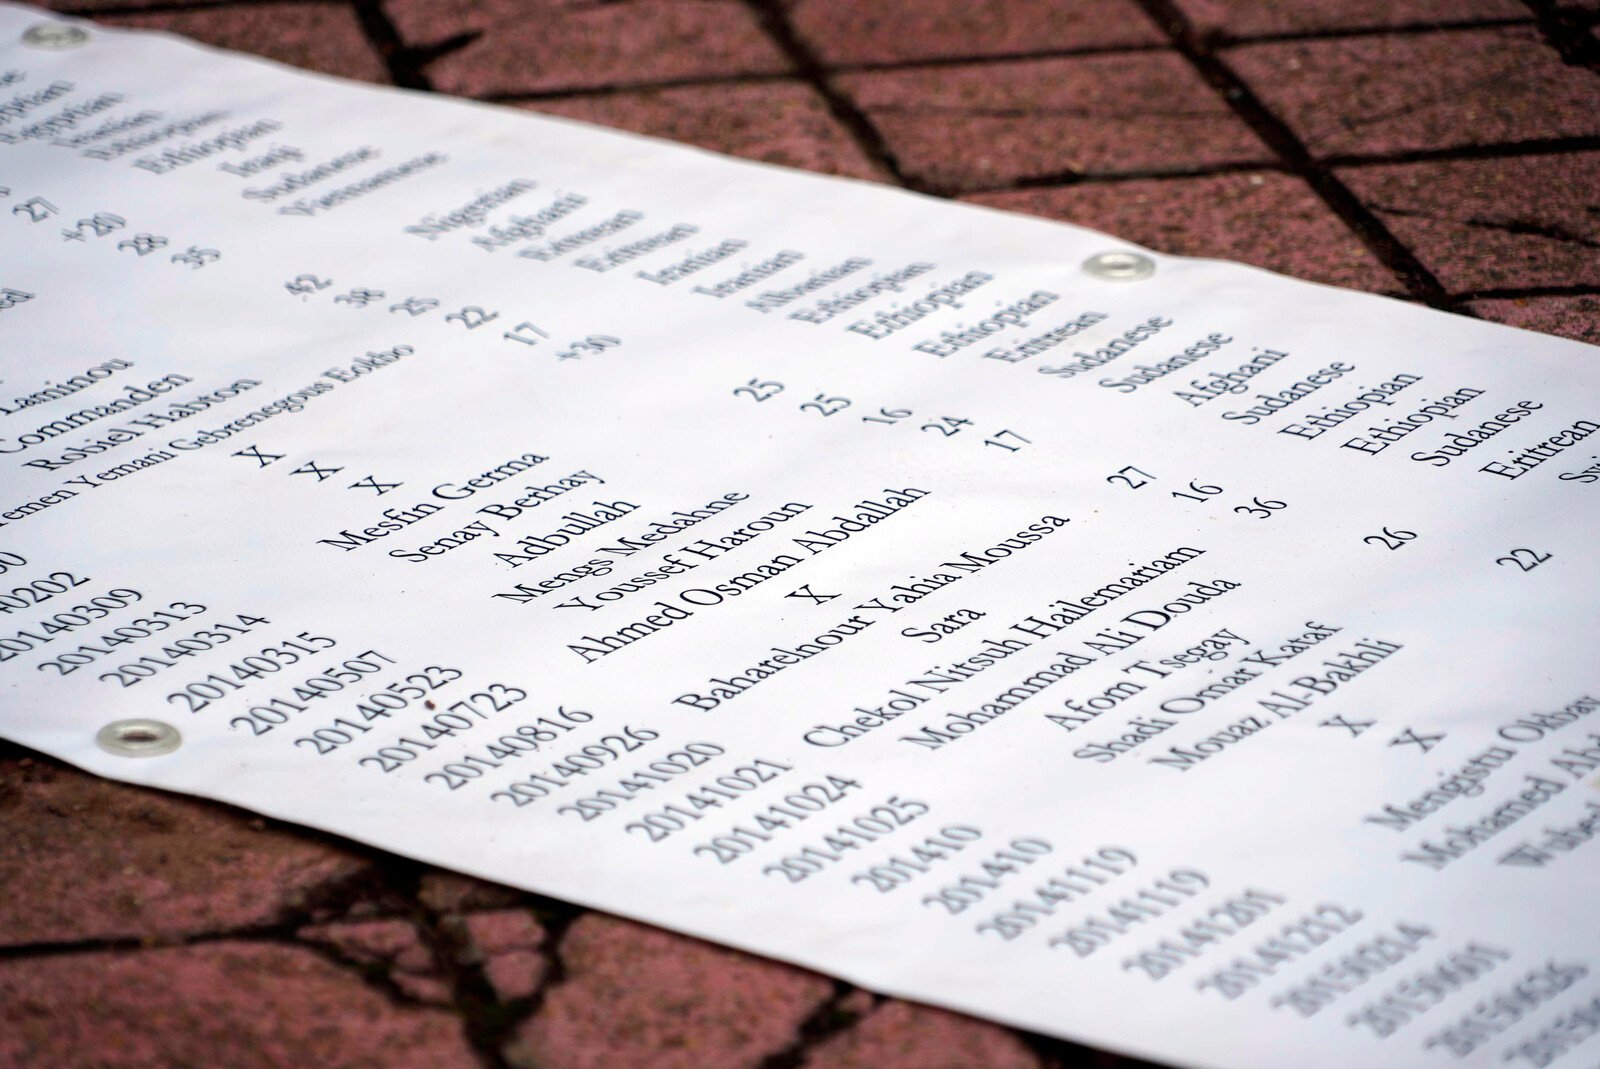 Egyptian
27 Ethiopian
+20 Iraqi
28 Sudanese
35 Vietnamese
Laminou 42 Nigerian
Commanden 38 Afghani
Robiel Habton 25 Eritrean
Yemani Gebrenegous Eokbo 22 Eritrean
X 17 Iranian
X +30 Iranian
20140309 X Albanian
20140313 Mesfin Germa Ethiopian
20140314 Senay Berhay 25 Ethiopian
20140315 Adbullah 25 Ethiopian
20140507 Mengs Medahne 16 Eritrean
20140523 Youssef Haroun 24 Sudanese
20140723 Ahmed Osman Abdallah 17 Sudanese
20140816 X Afghani
20140926 Baharelnour Yahia Moussa 27 Sudanese
20141020 Sara 16 Ethiopian
20141021 Chekol Nitsuh Hailemariam 36 Ethiopian
20141024 Mohammad Ali Douda Sudanese
20141025 Afom Tsegay 26 Eritrean
201410 Shadi Omar Kataf
201410 Mouaz Al-Bakhli 22
20141119 X
20141119 X
20141201 Mengistu Okbay
20141212 Mohamed
20150214
20150601
20150626